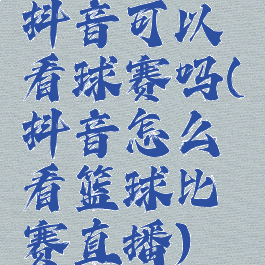 抖音可以
看球赛吗(
抖音怎么
看篮球比
赛直播)